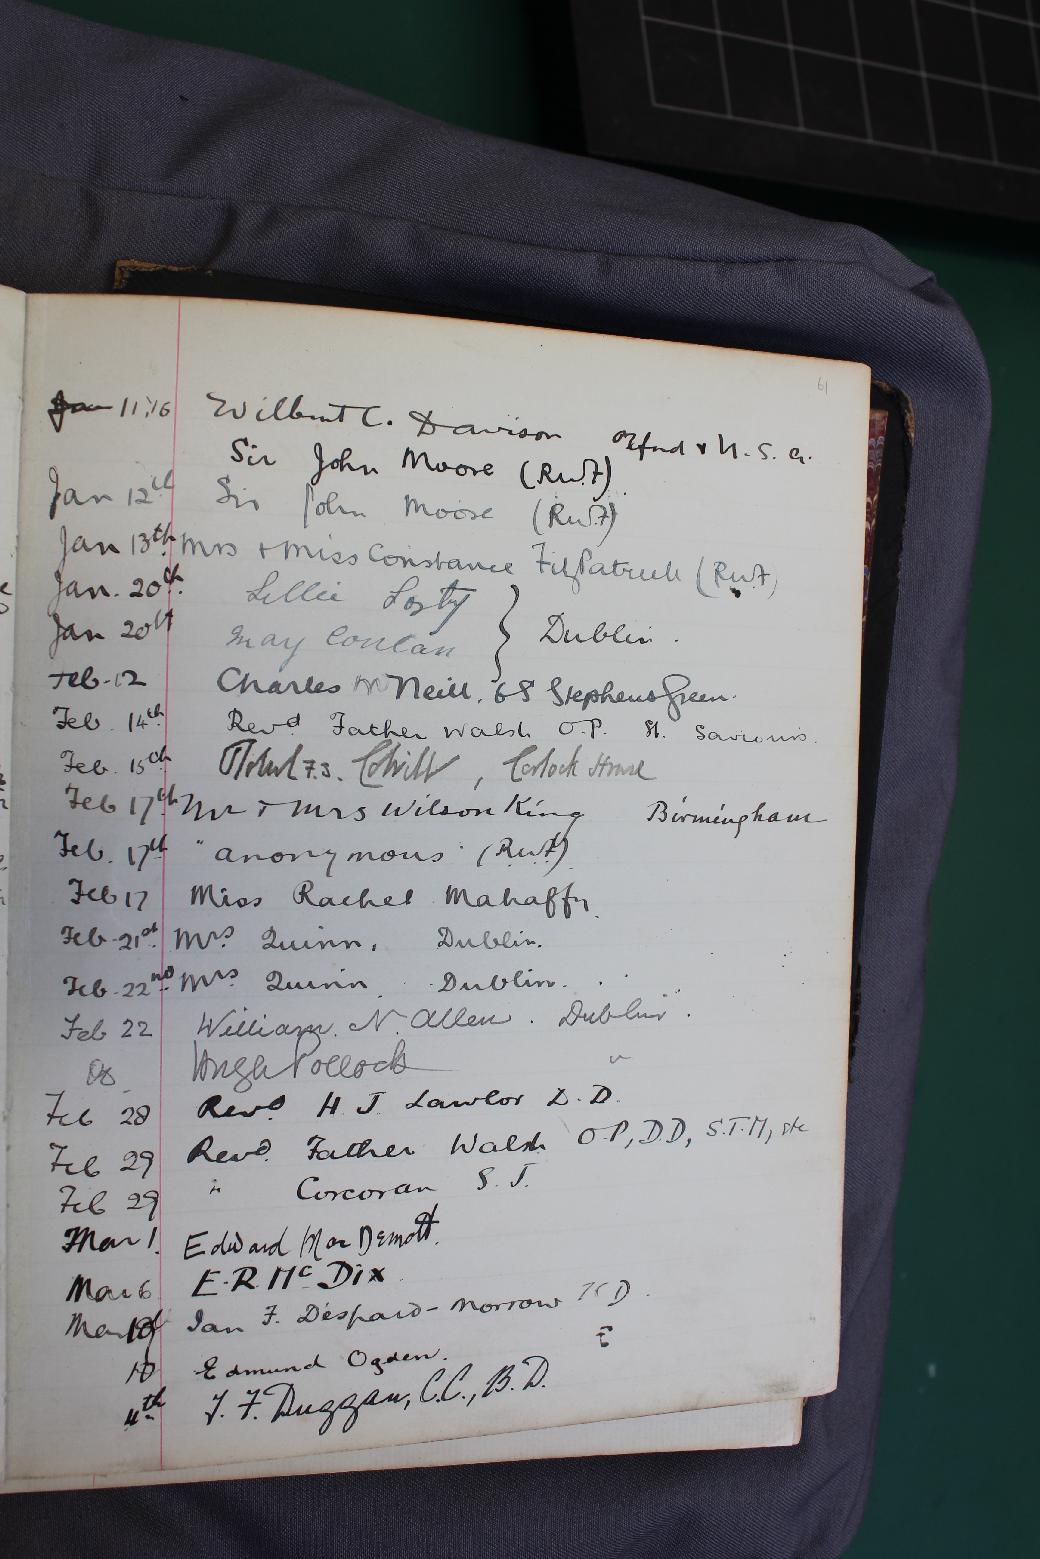 61
Jan 11,16 Wilburt C. Davison Oxford & U.S.A.
Sir John Moore (RWF)
Jan 12th Sir John Moore (RWF)
Jan 13th Mrs & Miss Constance FitzPatrick (RWF)
Jan. 20th Lillie Losty
Jan 20th May Conlan } Dublin.
Feb-12 Charles McNeill. 68 Stephens Green.
Feb. 14th Revd Father Walsh O.P. St. Saviours.
Feb. 15th Robert F.S. Colvill, Coolock House
Feb 17th Mr & Mrs Wilson King Birmingham
Feb. 17th "anonymous" (RWF)
Feb 17 Miss Rachel Mahaffy.
Feb-21st Mrs Quinn, Dublin.
Feb-22nd Mrs Quinn Dublin.
Feb 22 William N. Allen. Dublin.
Do Hugh Pollock "
Feb 28 Revd H J Lawlor D.D.
Feb 29 Revd. Father Walsh O.P, D.D, S.T.M, etc
Feb 29 " Corcoran S.J.
Mar 1. Edward MacDermott.
Mar 6 E.R. McC Dix
Mar 10 Ian F. Despard-Morrow
10 Edmund Ogden.
11th T. F. Duggan, C.C., B.D.